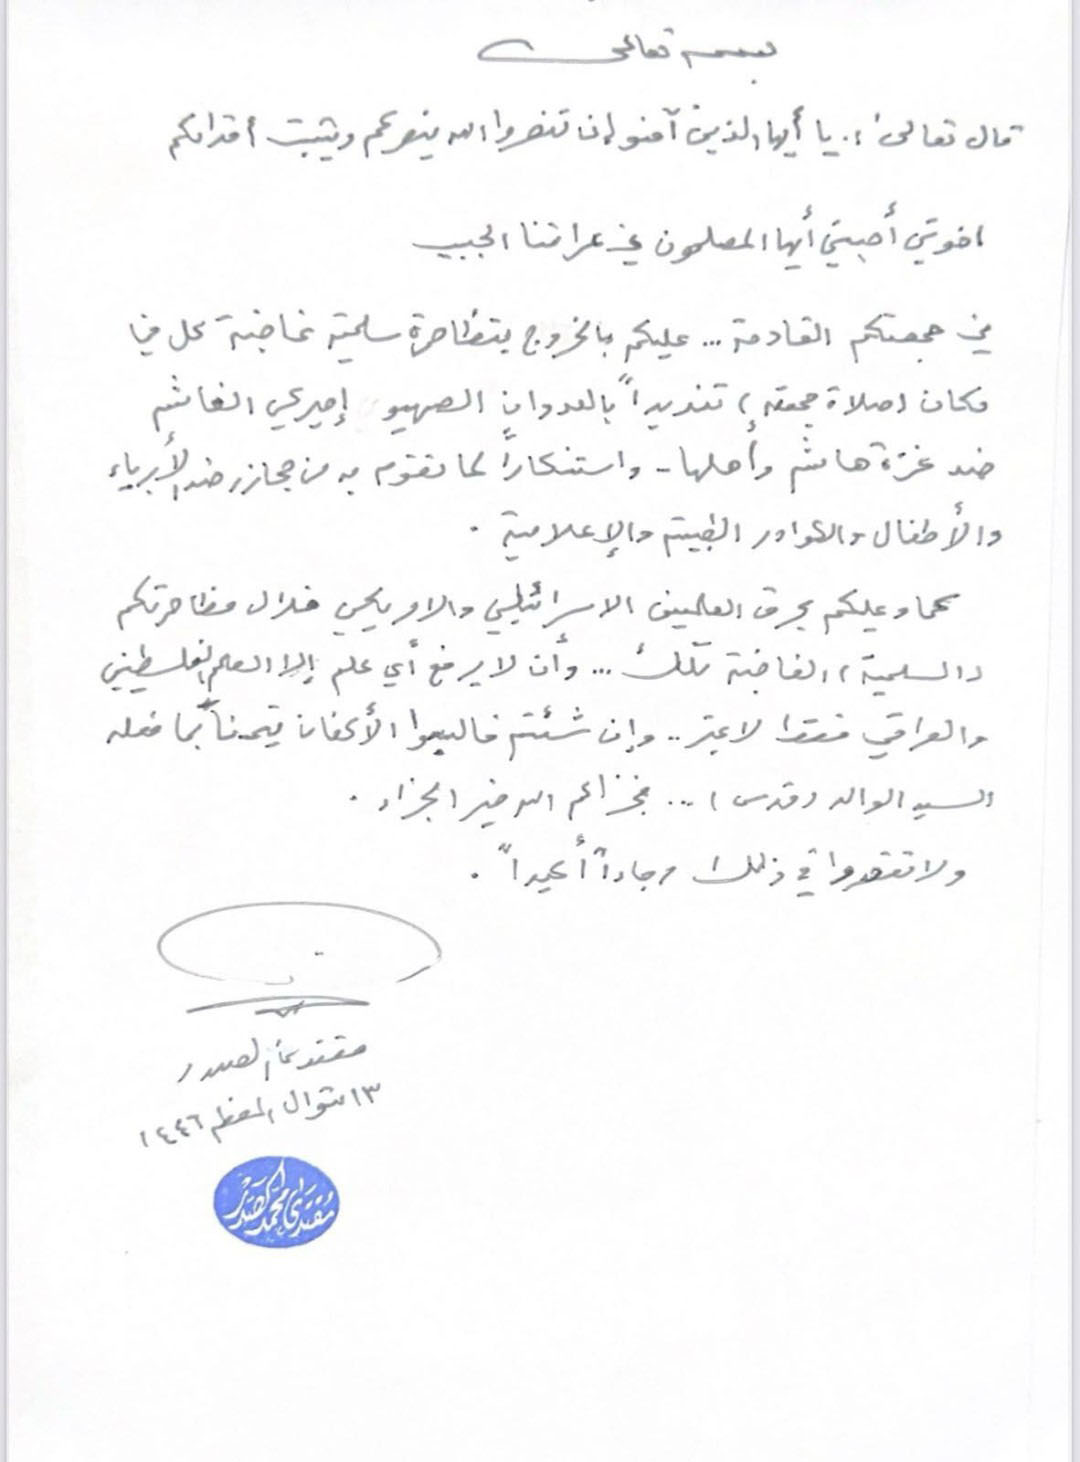 بسمه تعالى
قال تعالى: يا أيها الذين آمنوا إن تنصروا الله ينصركم ويثبت أقدامكم
اخوتي أحبتي أيها المصلحون في عراقنا الحبيب
في جمعتكم القادمة ... عليكم بالخروج بتظاهرة سلمية غاضبة كل في
مكان (صلاة جمعته) تنديداً بالعدوان الصهيو إميركي الغاشم
ضد غزة هاشم وأهلها - واستنكاراً لما تقوم به من مجازر ضد الأبرياء
والأطفال والكوادر الطبية والإعلامية .
كما وعليكم بحرق العلمين الاسرائيلي والامريكي خلال مظاهرتكم
(السلمية) الغاضبة تلك ... وأن لا يرفع أي علم إلا العلم الفلسطيني
والعراقي فقط لا غير .. وإن شئتم فالبسوا الأكفان تيمناً بما فعله
السيد الوالد (قدس) ... فجزاكم الله خير الجزاء .
ولا تقصروا في ذلك رجاءاً أكيداً .
مقتدى الصدر
١٣ شوال المعظم ١٤٤٦
مقتدى محمد الصدر